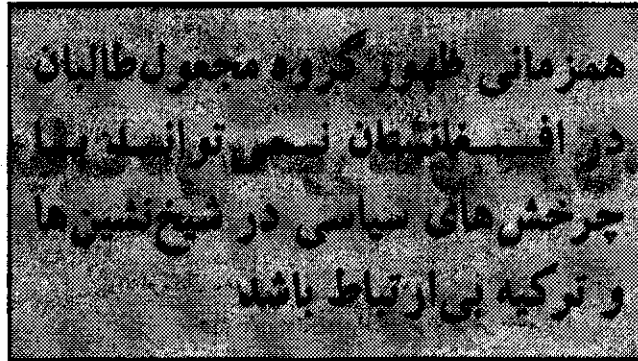 همزمانی ظهور گروه مجعول طالبان
در افغانستان نمی توانند با
چرخش‌های سیاسی در شیخ‌نشین‌ها
و ترکیه بی‌ارتباط باشد